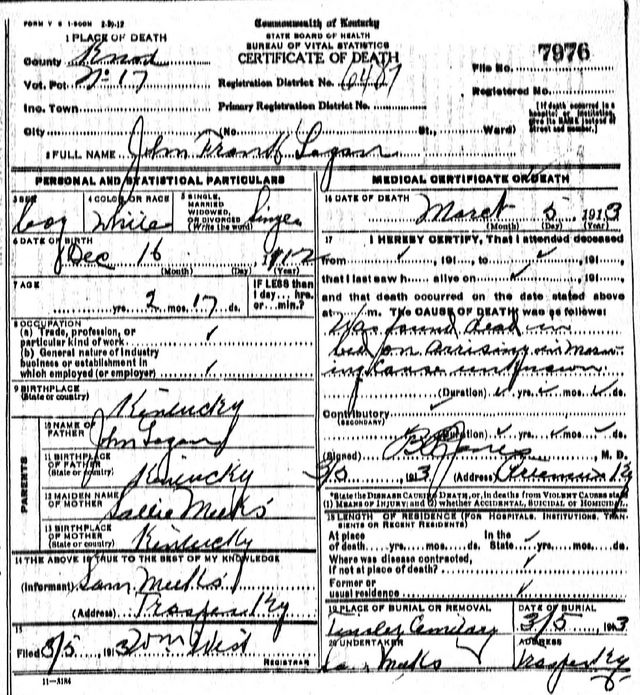 FORM V S 1-500M 2-19-12
Commonwealth of Kentucky
STATE BOARD OF HEALTH
BUREAU OF VITAL STATISTICS
CERTIFICATE OF DEATH
1 PLACE OF DEATH
County Knox
Vot. Pct. No 17
Inc. Town
City (No. St., Ward)
Registration District No. 6487
Primary Registration District No.
File No. 7976
Registered No.
[If death occurred in a hospital or institution, give its NAME instead of street and number.]
2 FULL NAME John Frank Logan
PERSONAL AND STATISTICAL PARTICULARS
3 SEX boy
4 COLOR OR RACE White
5 SINGLE, MARRIED WIDOWED, OR DIVORCED (Write the word) Single
6 DATE OF BIRTH
Dec 16, 1912
(Month) (Day) (Year)
7 AGE
yrs. 2 mos. 17 ds.
IF LESS than 1 day... hrs. or... min.?
8 OCCUPATION
(a) Trade, profession, or
particular kind of work ✓
(b) General nature of industry
business or establishment in
which employed (or employer) ✓
9 BIRTHPLACE
(State or country) Kentucky
PARENTS
10 NAME OF FATHER Jhn Logan
11 BIRTHPLACE OF FATHER (State or country) Kentucky
12 MAIDEN NAME OF MOTHER Sallie Meeks
13 BIRTHPLACE OF MOTHER (State or country) Kentucky
14 THE ABOVE IS TRUE TO THE BEST OF MY KNOWLEDGE
(Informant) Sam Meeks
(Address) Trosper Ky
15
Filed 3/5, 1913 Tom West
REGISTRAR
11-3184
MEDICAL CERTIFICATE OF DEATH
16 DATE OF DEATH
March 5 1913
(Month) (Day) (Year)
17 I HEREBY CERTIFY, That I attended deceased
from ✓, 191 to ✓, 191
that I last saw h alive on ✓, 191
and that death occurred on the date stated above
at m. The CAUSE OF DEATH was as follows:
Was found dead in
bed on arrising in morn
ing Cause unknown
(Duration) ✓ yrs. ✓ mos. ✓ ds.
Contributory ✓
(SECONDARY)
(Duration) ✓ yrs. ✓ mos. ✓ ds.
(Signed) M. D.
3/5, 1913 (Address) Ky
*State the DISEASE CAUSING DEATH, or, in deaths from VIOLENT CAUSES state
(1) MEANS OF INJURY; and (2) whether ACCIDENTAL, SUICIDAL OR HOMICIDAL.
18 LENGTH OF RESIDENCE (FOR HOSPITALS, INSTITUTIONS, TRANSIENTS OR RECENT RESIDENTS)
At place In the
of death yrs. mos. ds. State yrs. mos. ds.
Where was disease contracted,
if not at place of death?
Former or
usual residence
19 PLACE OF BURIAL OR REMOVAL
Tinsley Cemitary
DATE OF BURIAL
3/5, 1913
20 UNDERTAKER
Meeks
ADDRESS
Trosper Ky